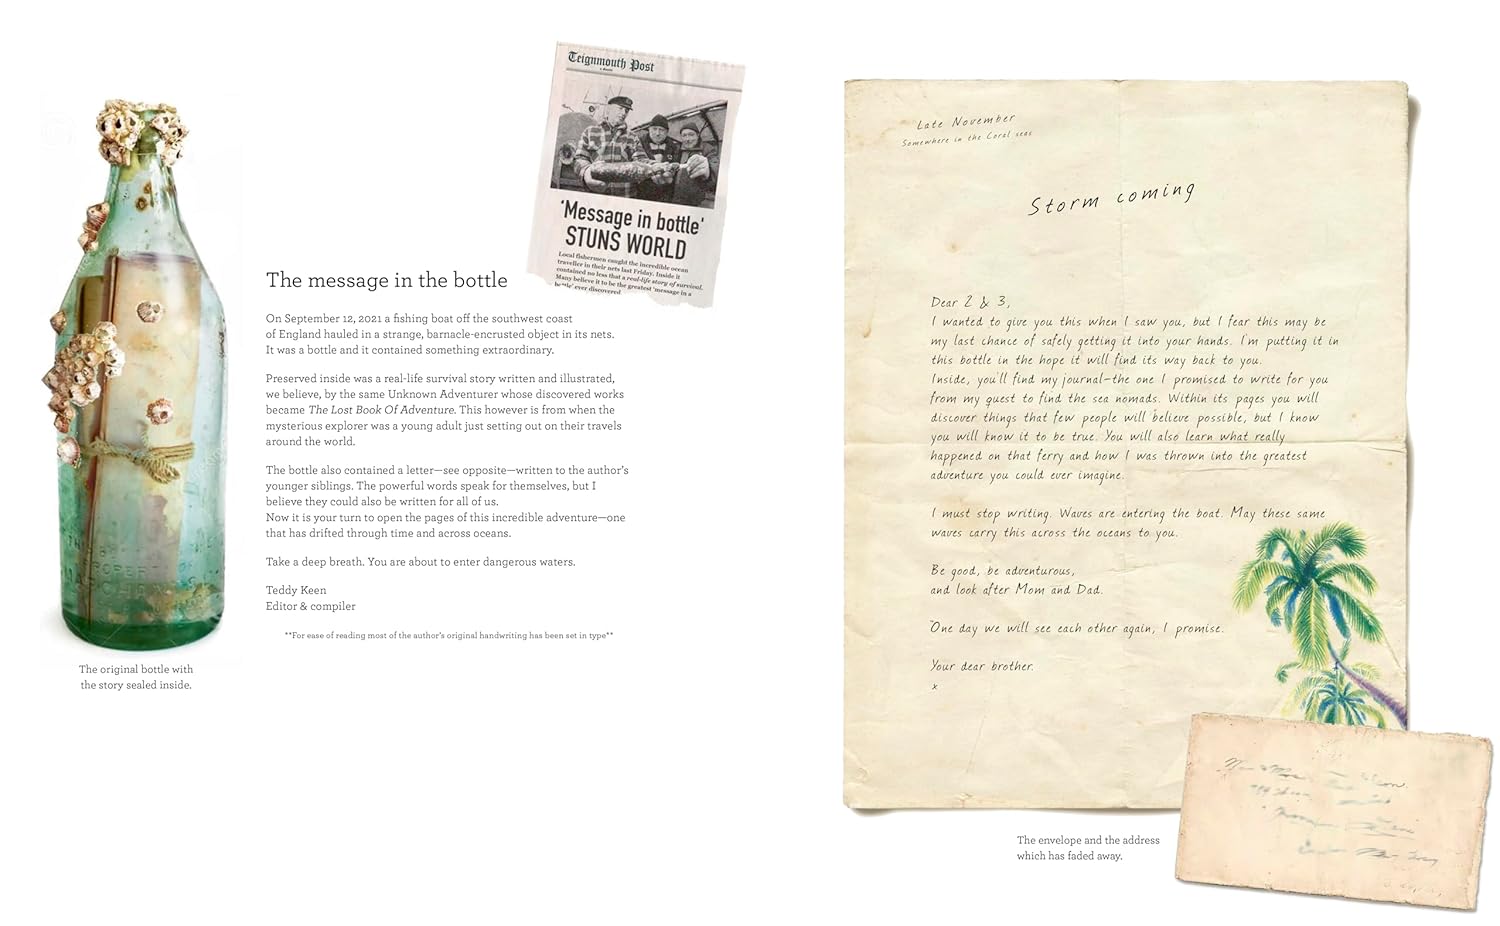 Teignmouth Post
'Message in bottle'
STUNS WORLD
Local fishermen caught the incredible ocean
traveller in their nets last Friday. Inside it
contained no less that a real-life story of survival.
Many believe it to be the greatest 'message in a
bottle' ever discovered
The message in the bottle
On September 12, 2021 a fishing boat off the southwest coast
of England hauled in a strange, barnacle-encrusted object in its nets.
It was a bottle and it contained something extraordinary.
Preserved inside was a real-life survival story written and illustrated,
we believe, by the same Unknown Adventurer whose discovered works
became The Lost Book Of Adventure. This however is from when the
mysterious explorer was a young adult just setting out on their travels
around the world.
The bottle also contained a letter—see opposite—written to the author's
younger siblings. The powerful words speak for themselves, but I
believe they could also be written for all of us.
Now it is your turn to open the pages of this incredible adventure—one
that has drifted through time and across oceans.
Take a deep breath. You are about to enter dangerous waters.
Teddy Keen
Editor & compiler
**For ease of reading most of the author's original handwriting has been set in type**
The original bottle with
the story sealed inside.
Late November
Somewhere in the Coral seas
Storm coming
Dear 2 & 3,
I wanted to give you this when I saw you, but I fear this may be
my last chance of safely getting it into your hands. I'm putting it in
this bottle in the hope it will find its way back to you.
Inside, you'll find my journal—the one I promised to write for you
from my quest to find the sea nomads. Within its pages you will
discover things that few people will believe possible, but I know
you will know it to be true. You will also learn what really
happened on that ferry and how I was thrown into the greatest
adventure you could ever imagine.
I must stop writing. Waves are entering the boat. May these same
waves carry this across the oceans to you.
Be good, be adventurous,
and look after Mom and Dad.
One day we will see each other again, I promise.
Your dear brother.
x
The envelope and the address
which has faded away.